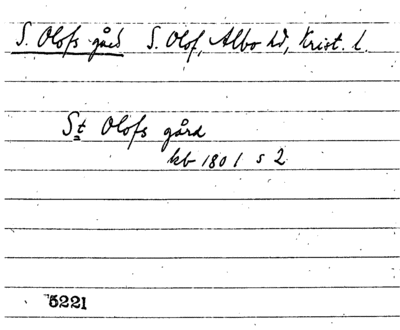 S. Olofs gård S. Olof, Albo hd, Krist. l.
St Olofs gård
kb 1801 s 2
5221